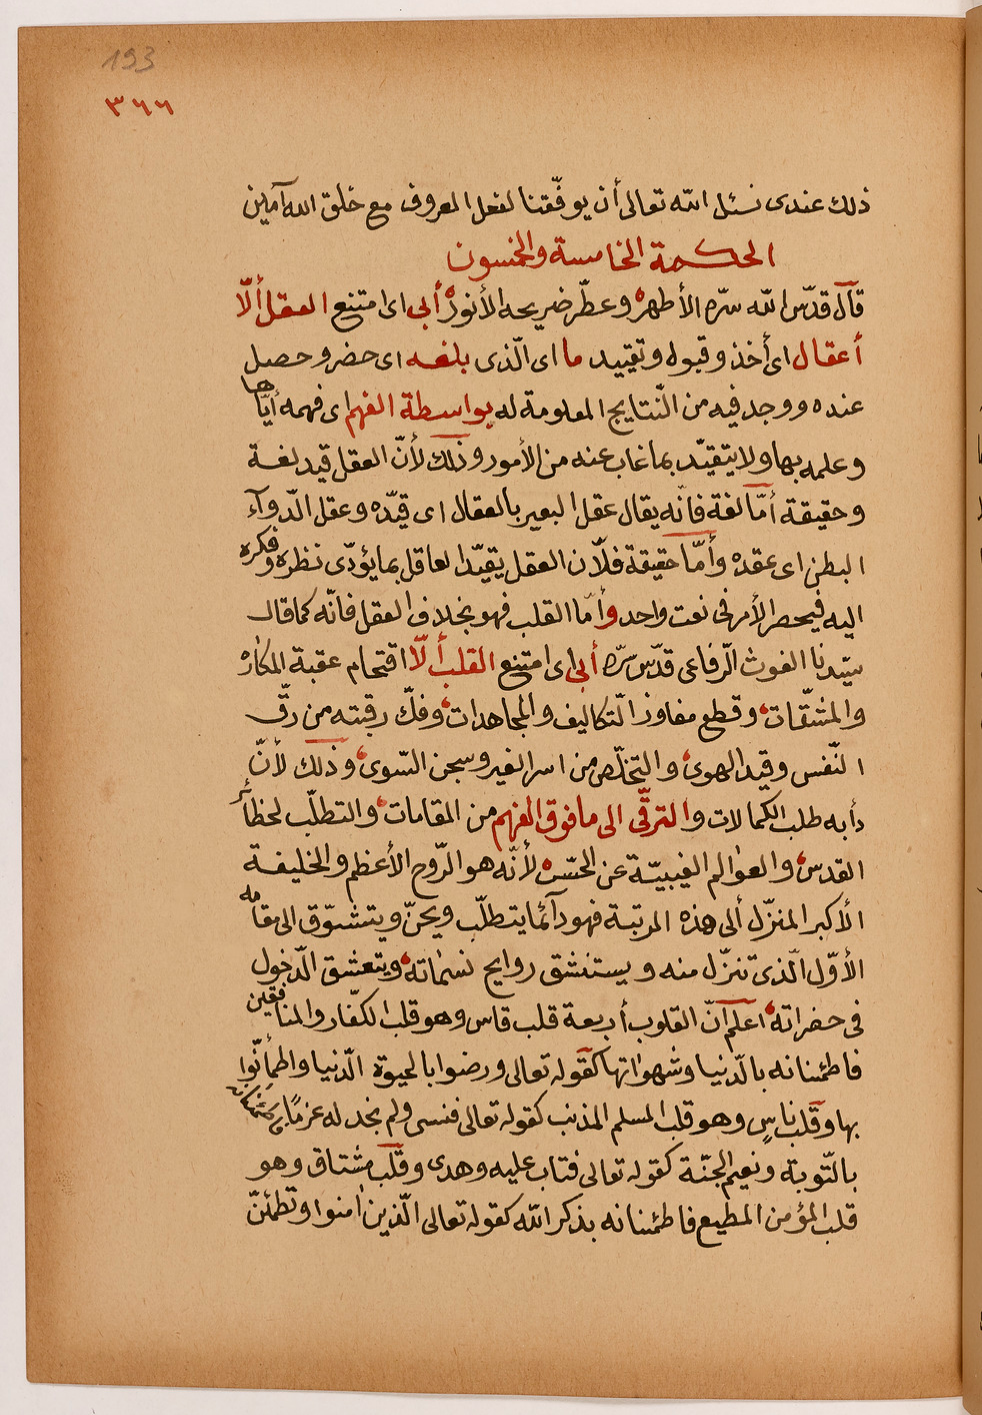 193
٣٦٦
ذلك عندى نسئل الله تعالى أن يوفّقنا لفعل المعروف مع خلق الله آمين
الحكمة الخامسة والخمسون
قال قدّس الله سرّه الأطهر وعطّر ضريحه الأنور أبى اى امتنع العقل ألّا
أعقال اى أخذ وقبوله وتقييد ما اى الّذى بلغه اى حضر وحصل
عنده ووجد فيه من النّتايج المعلومة له بواسطة الفهم اى فهمه أيّاها
وعلمه بها ولا يتقيّد بما غاب عنه من الأمور وذلك لأنّ العقل قيد لغة
وحقيقة أمّا لغة فانّه يقال عقل البعير بالعقال اى قيّده وعقل الدّوآء
البطن اى عقده وأمّا حقيقة فلأن العقل يقيّد العاقل بما يؤدّى نظره وفكره
اليه فيحصر الأمر فى نعت واحد وأمّا القلب فهو بخلاف العقل فانّه كما قال
سيّدنا الغوث الرّفاعى قدّس سرّه أبى اى امتنع القلب ألّا اقتحام عقبة المكاره
والمشقّات وقطع مفاوز التّكاليف والمجاهدات وفكّ رقبته من رقّ
النّفس وقيد الهوى والتخلّص من اسر الغير وسجن السّوى وذلك لأنّ
دأبه طلب الكمالات والترقّى الى ما فوق الفهم من المقامات والتطلّب لحظائر
القدس والعوالم الغيبيّة عن الحسّ لأنّه هو الرّوح الأعظم والخليفة
الأكبر المنزّل ألى هذه المرتبة فهو دآئما يتطلّب ويحنّ ويتشوّق الى مقامه
الأوّل الّذى تنزّل منه ويستنشق روايح نسماته ويتعشق الدّخول
فى حضراته اعلم انّ القلوب أربعة قلب قاس وهو قلب الكفّار والمنافقين
فاطمئنانه بالدّنيا وشهواتها كقوله تعالى ورضوا بالحيوة الدّنيا واطمأنّوا
بها وقلب ناسٍ وهو قلب المسلم المذنب كقوله تعالى فنسى ولم نجد له عزمًا فاطمئنانه
بالتّوبة ونعيم الجنّة كقوله تعالى فتاب عليه وهدى وقلب مشتاق وهو
قلب المؤمن المطيع فاطمئنانه بذكر الله كقوله تعالى الّذين امنوا وتطمئنّ